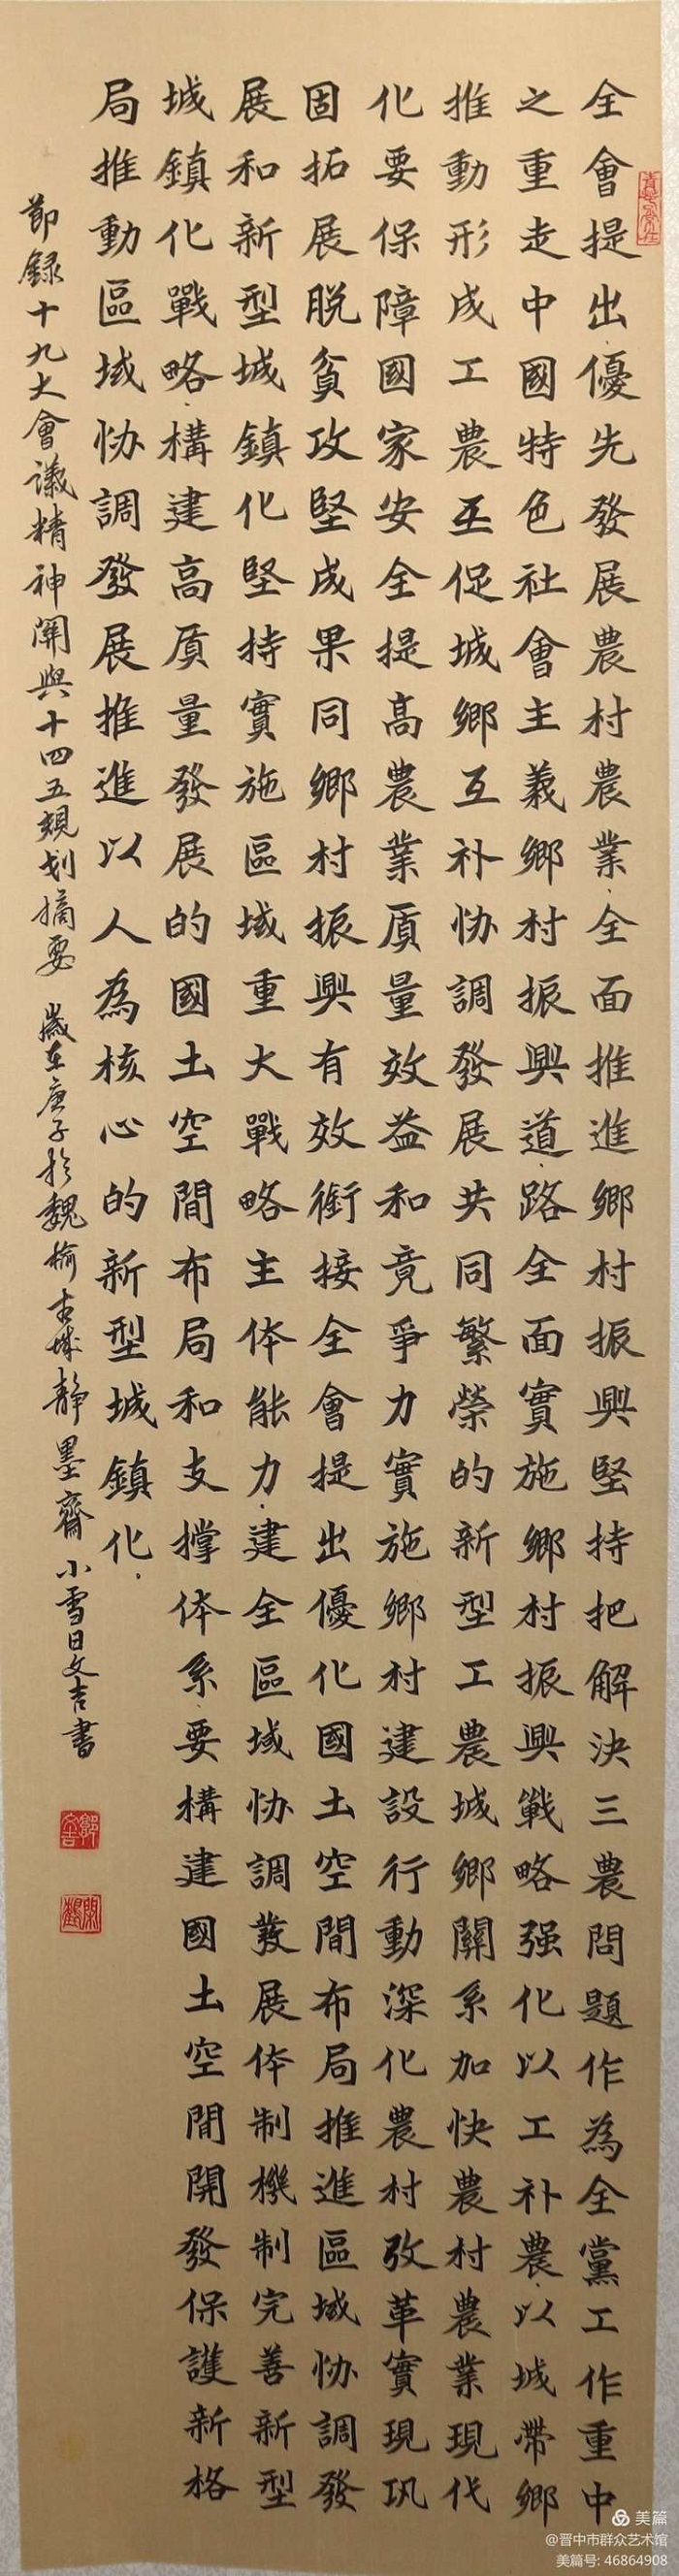 全會提出優先發展農村農業全面推進鄉村振興堅持把解決三農問題作為全黨工作重中
之重走中國特色社會主義鄉村振興道路全面實施鄉村振興戰略强化以工补農以城帶鄉
推動形成工農互促城鄉互补協調發展共同繁榮的新型工農城鄉關系加快農村農業現代
化要保障國家安全提高農業质量效益和竟爭力實施鄉村建設行動深化農村改革實現巩
固拓展脱貧攻堅成果同鄉村振興有效銜接全會提出優化國土空間布局推進區域协調發
展和新型城鎮化堅持實施區域重大戰略主体能力建全區域协調發展体制機制完善新型
城鎮化戰略構建高质量發展的國土空間布局和支撑体系要構建國土空間開發保護新格
局推動區域协調發展推進以人為核心的新型城鎮化
節錄十九大會議精神關與十四五規划摘要 歲在庚子於魏榆古城静墨齋小雪日文吉書
美篇
@晋中市群众艺术馆
美篇号: 46864908